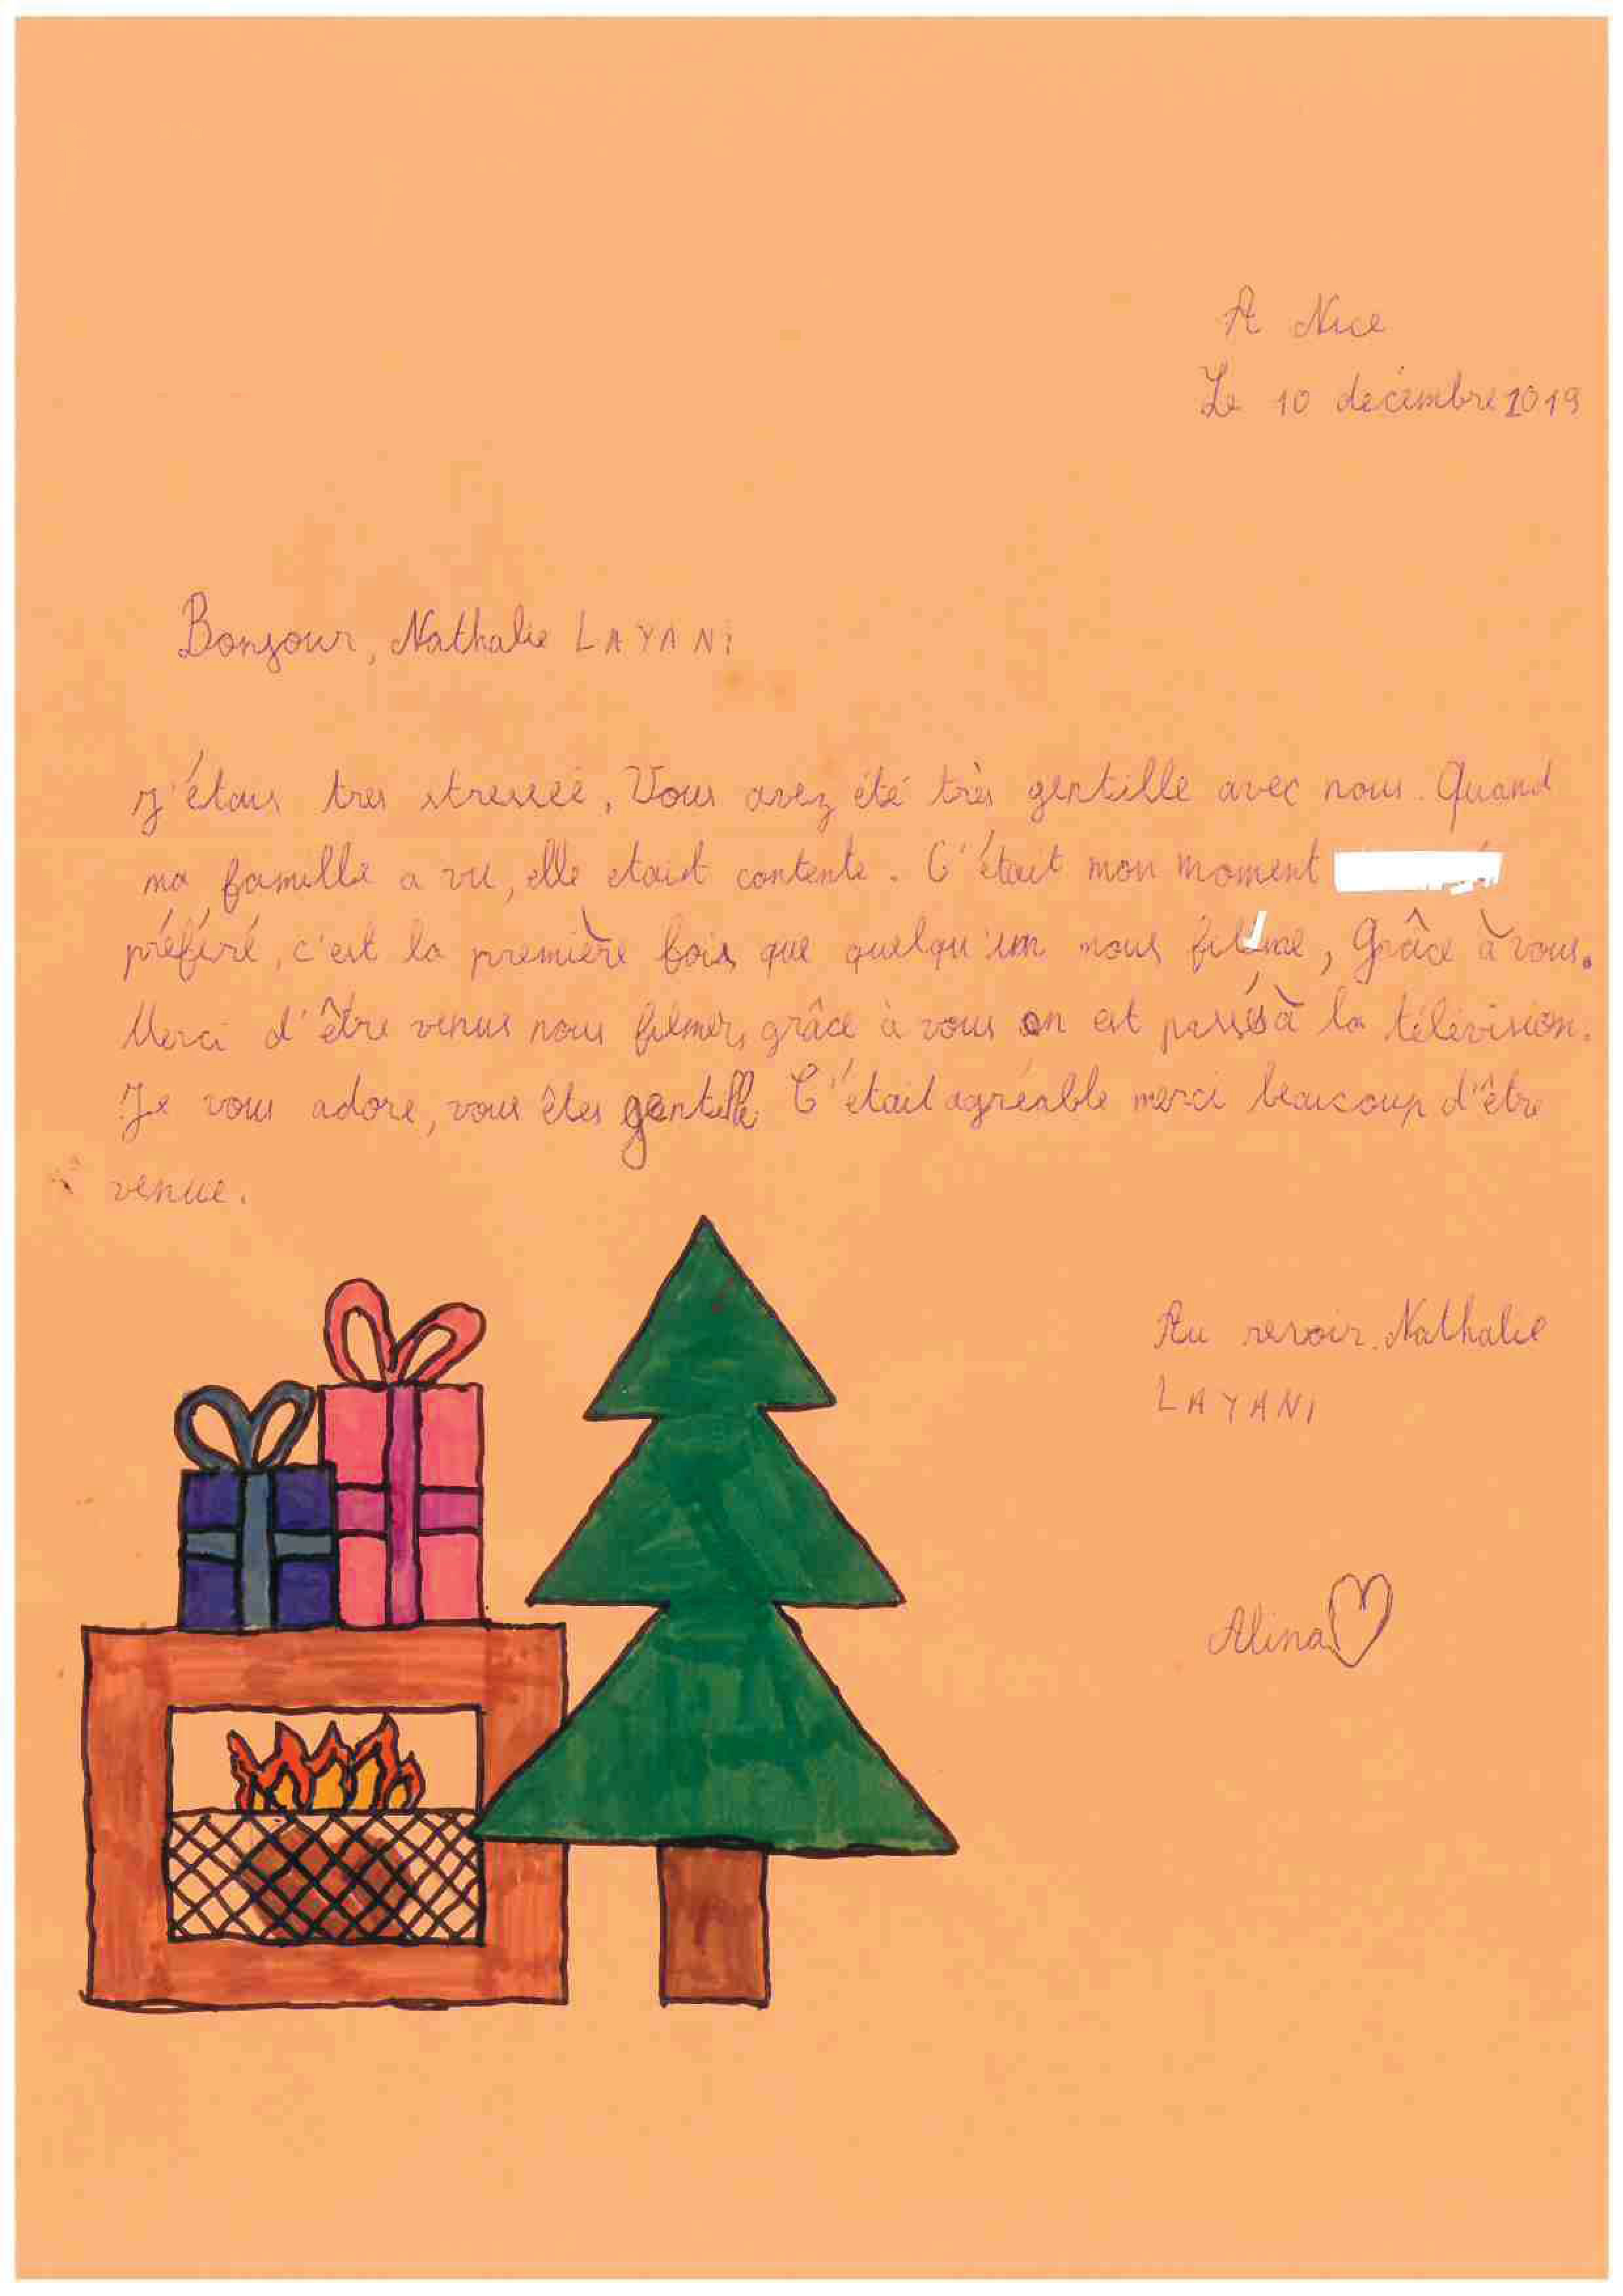 A Nice
Le 10 décembre 2019
Bonjour, Nathalie LAYANI
J'étais tres stressée, Vous avez été très gentille avec nous. Quand
ma famille a vu, elle etait contente. C'était mon moment
préféré, c'est la première fois que quelqu'un nous filme, Grâce à vous.
Merci d'être venus nous filmer, grâce à vous on est passés à la télévision.
Je vous adore, vous êtes gentille C'était agréable merci beaucoup d'être
venue.
Au revoir, Nathalie
LAYANI
Alina